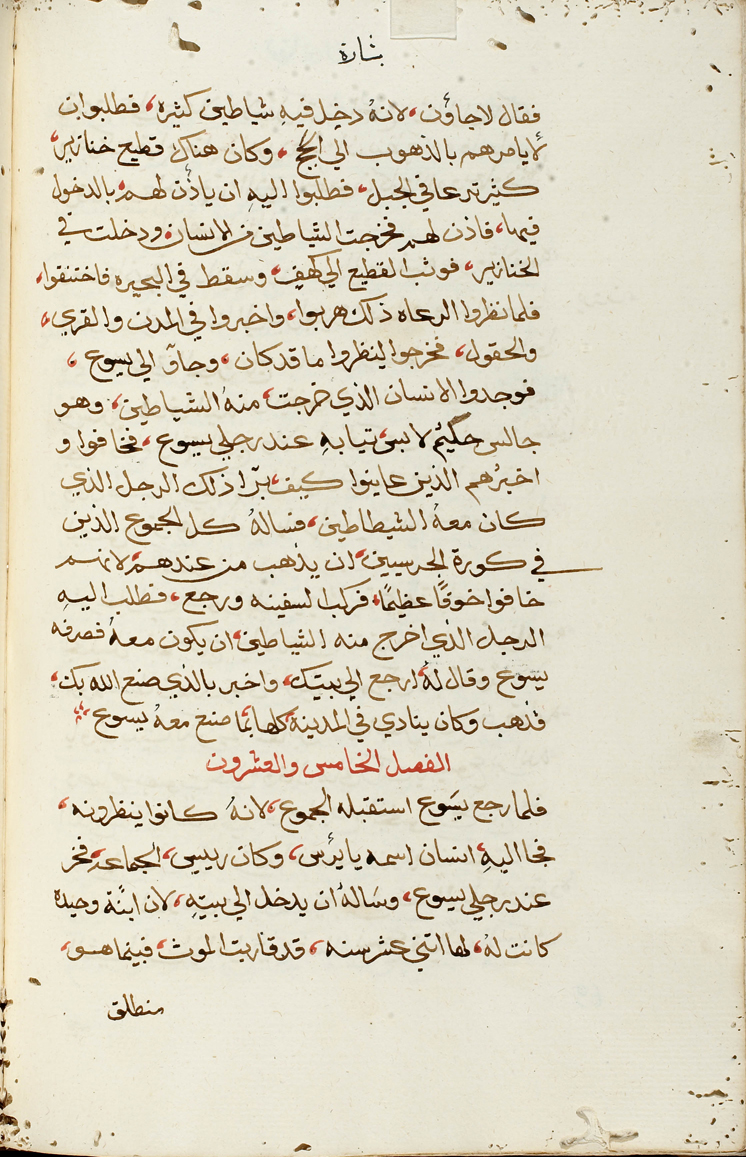 بشارة
فقال لاجاؤن، لانهُ دخل فيهِ شياطين كثيره، فطلبوا ان
لايامرهم بالذهوب الي الجج، وكان هناك قطيع خنازير،
كثير ترعا في الجبل، فطلبوا اليهِ ان ياذن لهم، بالدخول
فيها، فاذن لهم فخرجت الشياطين من الانسان ودخلت في
الخنازير، فوثب القطيع الي كهف، وسقط في البحيره فاختنقوا،
فلما نظروا الرعاه ذلك هربوا، واخبروا في المدن والقري،
والحقول، فخرجوا لينظروا ما قد كان، وجاوَ الي يسوع،
فوجدوا الانسان الذي خرجت، منهُ الشياطين، وهو
جالس حكيمٌ لابس، تيابهِ عند رجلي يسوع، فخافوا و
اخبرُهم الذين عاينوا كيف، برّا ذلك الرجل الذي
كان معهُ الشيطاطين، فسالهُ كل الجموع الذين
في كورة الجرسيين، ان يذهب من عندهم، لانهم
خافوا خوفًا عظيمًا، فركب السفينه ورجع، فطلب اليهِ
الرجل الذي اخرج منه الشياطين، ان يكون معهُ فصرفه
يسوع وقال لهُ، ارجع الي بيتك، واخبر بالذي صنع الله بك،
فذهب وكان ينادي في المدينة، كلها بما صنع معهُ يسوع
الفصل الخامس والعشرون
فلما رجع يسَوع استقبله الجموع، لانهُ كانوا ينظرونه،
فجا اليهِ، انسان اسمه يايرُس، وكان رييس، الجماعه، فخر
عند رجلي يسوع، وسَالهُ ان يدخل الي بيتِه، لان ابنَة وحيدة
كانت لهُ، لها اتني عشر سنه، قد قاربت الموت، فبينما هو،
منطلق